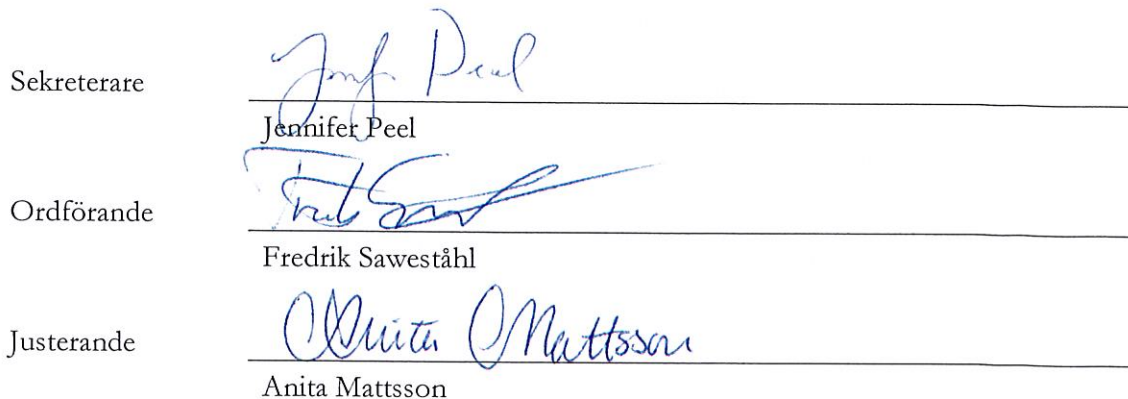 Sekreterare
Jennifer Peel
Jennifer Peel
Ordförande
Fredrik Saweståhl
Justerande
Anita Mattsson
Anita Mattsson